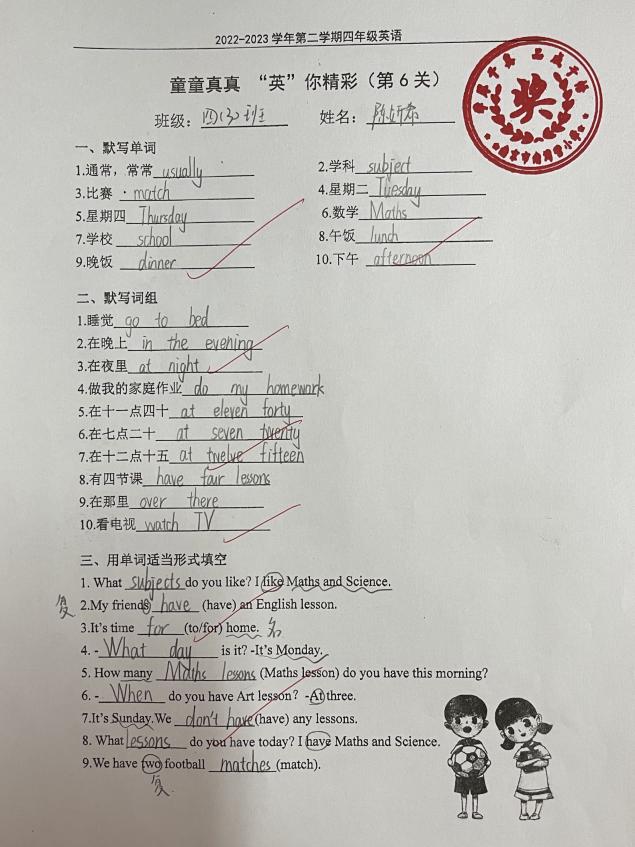 2022-2023 学年第二学期四年级英语
童童真真 “英”你精彩（第 6 关）
班级：四(3)班 姓名：陈妍希
奖
一、默写单词
1.通常，常常 usually 2.学科 subject
3.比赛 match 4.星期二 Tuesday
5.星期四 Thursday 6.数学 Maths
7.学校 school 8.午饭 lunch
9.晚饭 dinner 10.下午 afternoon
二、默写词组
1.睡觉 go to bed
2.在晚上 in the evening
3.在夜里 at night
4.做我的家庭作业 do my homework
5.在十一点四十 at eleven forty
6.在七点二十 at seven twenty
7.在十二点十五 at twelve fifteen
8.有四节课 have four lessons
9.在那里 over there
10.看电视 watch TV
三、用单词适当形式填空
1. What subjects do you like? I like Maths and Science.
复 2.My friends have (have) an English lesson.
3.It's time for (to/for) home. 名
4. -What day is it? -It's Monday.
5. How many Maths lessons (Maths lesson) do you have this morning?
6. -When do you have Art lesson? -At three.
7.It's Sunday.We don't have (have) any lessons.
8. What lessons do you have today? I have Maths and Science.
9.We have two football matches (match).
复